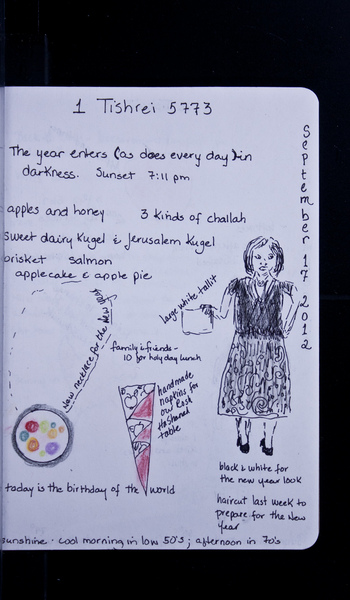 1 Tishrei 5773
September 17 2012
The year enters (as does every day) in
darkness. Sunset 7:11 pm
apples and honey 3 kinds of challah
sweet dairy Kugel & Jerusalem Kugel
brisket salmon
applecake & apple pie
large white tallit
New necklace for the New Year
family & friends -
10 for holyday lunch
handmade
napkins for
our Rosh
Hashanah
table
black & white for
the new year look
today is the birthday of the world
haircut last week to
prepare for the New
Year
sunshine · cool morning in low 50's; afternoon in 70's